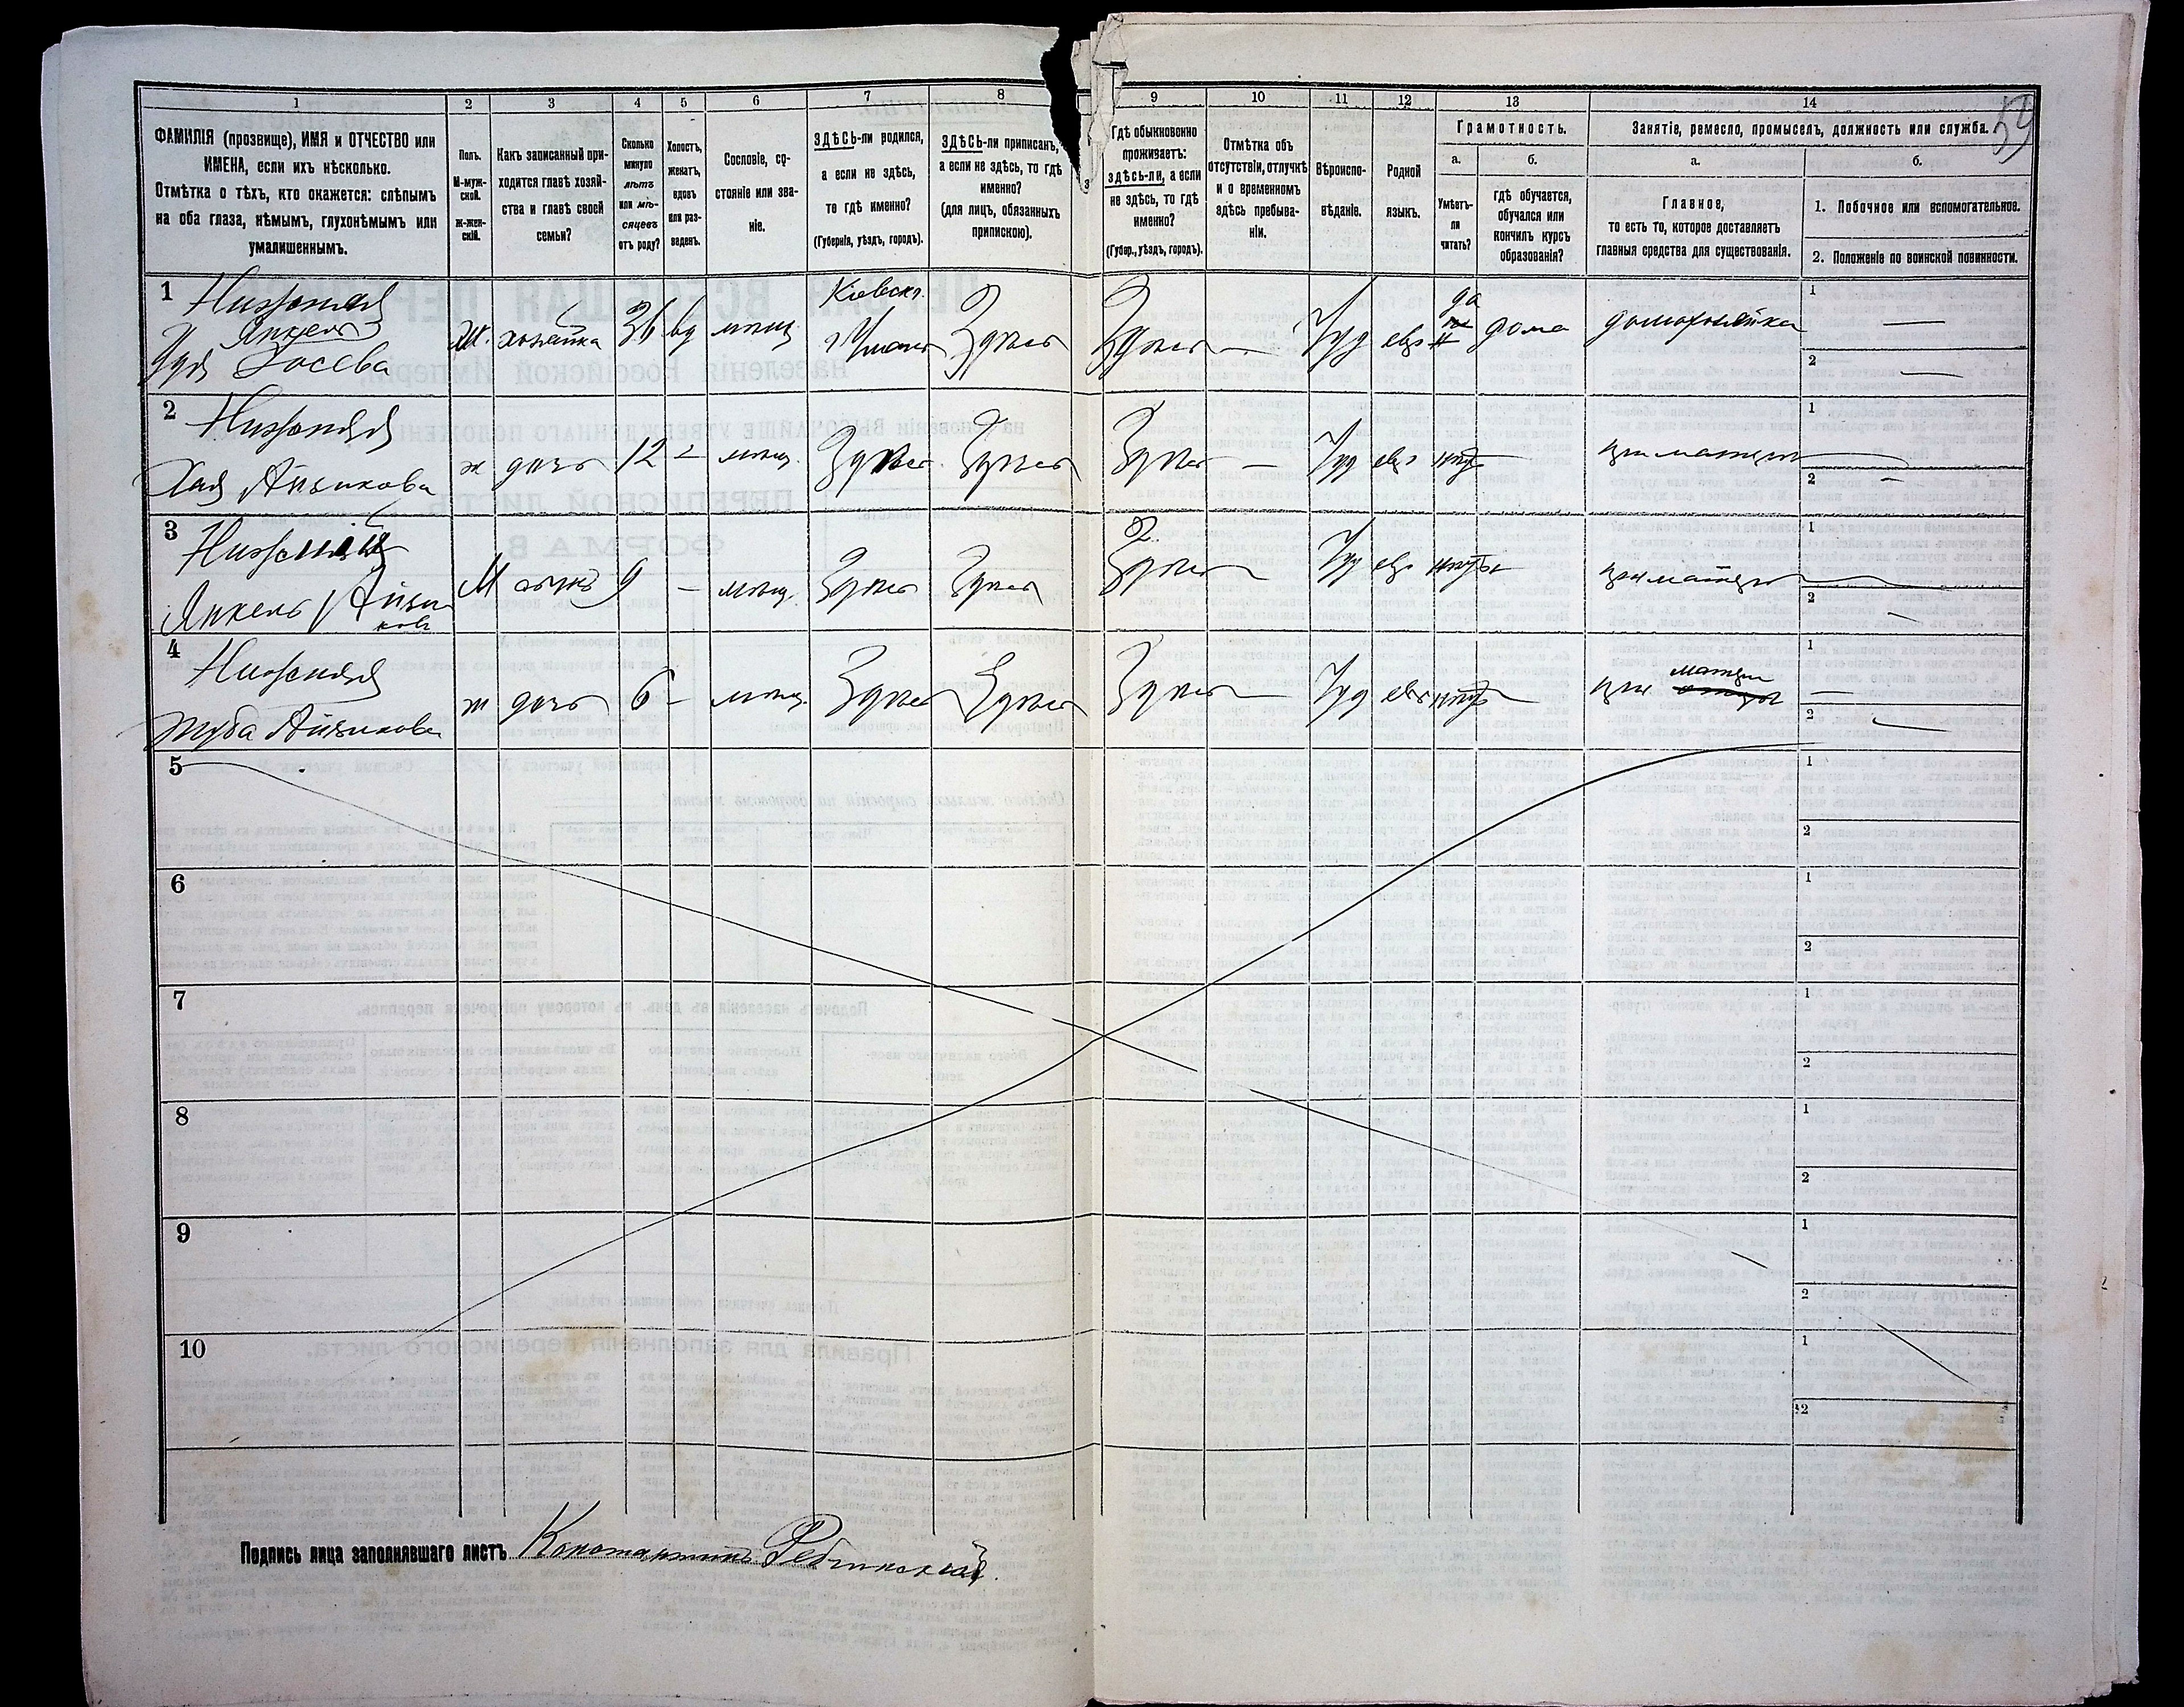 1 2 3 4 5 6 7 8 9 10 11 12 13 14
59
ФАМИЛІЯ (прозвище), ИМЯ и ОТЧЕСТВО или
ИМЕНА, если ихъ нѣсколько.
Отмѣтка о тѣхъ, кто окажется: слѣпымъ
на оба глаза, нѣмымъ, глухонѣмымъ или
умалишеннымъ.
Полъ.
М-муж-
ской.
ж-жен-
скій.
Какъ записанный при-
ходится главѣ хозяй-
ства и главѣ своей
семьи?
Сколько
минуло
лѣтъ
или мѣ-
сяцевъ
отъ роду?
Холостъ,
женатъ,
вдовъ
или раз-
веденъ.
Сословіе, со-
стояніе или зва-
ніе.
ЗДѢСЬ-ли родился,
а если не здѣсь,
то гдѣ именно?
(Губернія, уѣздъ, городъ).
ЗДѢСЬ-ли приписанъ,
а если не здѣсь, то гдѣ
именно?
(для лицъ, обязанныхъ
припискою).
Гдѣ обыкновенно
проживаетъ:
здѣсь-ли, а если
не здѣсь, то гдѣ
именно?
(Губер., уѣздъ, городъ).
Отмѣтка объ
отсутствіи, отлучкѣ
и о временномъ
здѣсь пребыва-
ніи.
Вѣроиспо-
вѣданіе.
Родной
языкъ.
Грамотность.
а.
Умѣетъ-
ли
читать?
б.
гдѣ обучается,
обучался или
кончилъ курсъ
образованія?
Занятіе, ремесло, промыселъ, должность или служба.
а.
Главное,
то есть то, которое доставляетъ
главныя средства для существованія.
б.
1. Побочное или вспомогательное.
2. Положеніе по воинской повинности.
1
Янкель
Іосева
Ж. хозяйка 36 вд мѣщ. Кіевск. г Умань Здѣсь Здѣсь — Іуд евр да дома домохозяйка 1 — 2 —
2
Хая Айзикова
ж дочь 12 - мѣщ. Здѣсь Здѣсь Здѣсь — Іуд евр нѣтъ при матери 1 2 -
3
Янкель Айзи
ковъ
М сынъ 9 - мѣщ. Здѣсь Здѣсь Здѣсь Іуд евр нѣтъ при матери 1 2
4
Айзикова
ж дочь 6 - мѣщ. Здѣсь Здѣсь Здѣсь Іуд евр нѣтъ при матери 1 2
5 1 2
6 1 2
7 1 2
8 1 2
9 1 2
10 1 2
Подпись лица заполнявшаго листъ Константинъ